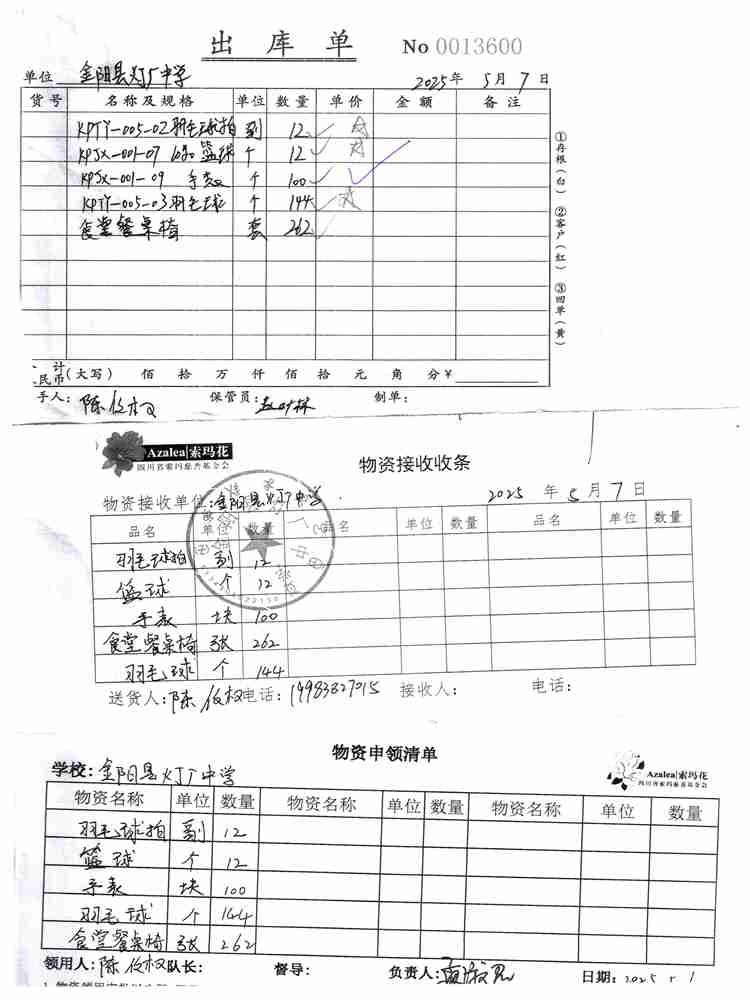 出库单 No 0013600
单位 金阳县灯厂中学 2025年 5月 7日
货号 名称及规格 单位 数量 单价 金额 备注
KPTY-005-02 羽毛球拍 副 12
KPJX-001-07 篮球 个 12
KPJX-001-09 手表 个 100
KPTY-005-03 羽毛球 个 144
食堂餐桌椅 套 262
①存根（白） ②客户（红） ③回单（黄）
计
民币(大写) 佰 拾 万 仟 佰 拾 元 角 分¥
手人: 保管员: 制单:
Azalea|索玛花
四川省索玛慈善基金会
物资接收收条
物资接收单位:金阳县灯厂中学 2025年 5月 7日
品名 单位 数量 品名 单位 数量 品名 单位 数量
羽毛球拍 副 12
篮球 个 12
手表 块 100
食堂餐桌椅 张 262
羽毛球 个 144
送货人: 陈 电话: 14983827015 接收人: 电话:
物资申领清单
Azalea|索玛花
四川省索玛慈善基金会
学校: 金阳县灯厂中学
物资名称 单位 数量 物资名称 单位 数量 物资名称 单位 数量
羽毛球拍 副 12
篮球 个 12
手表 块 100
羽毛球 个 144
食堂餐桌椅 张 262
领用人: 陈 队长: 督导: 负责人: 日期: 2025